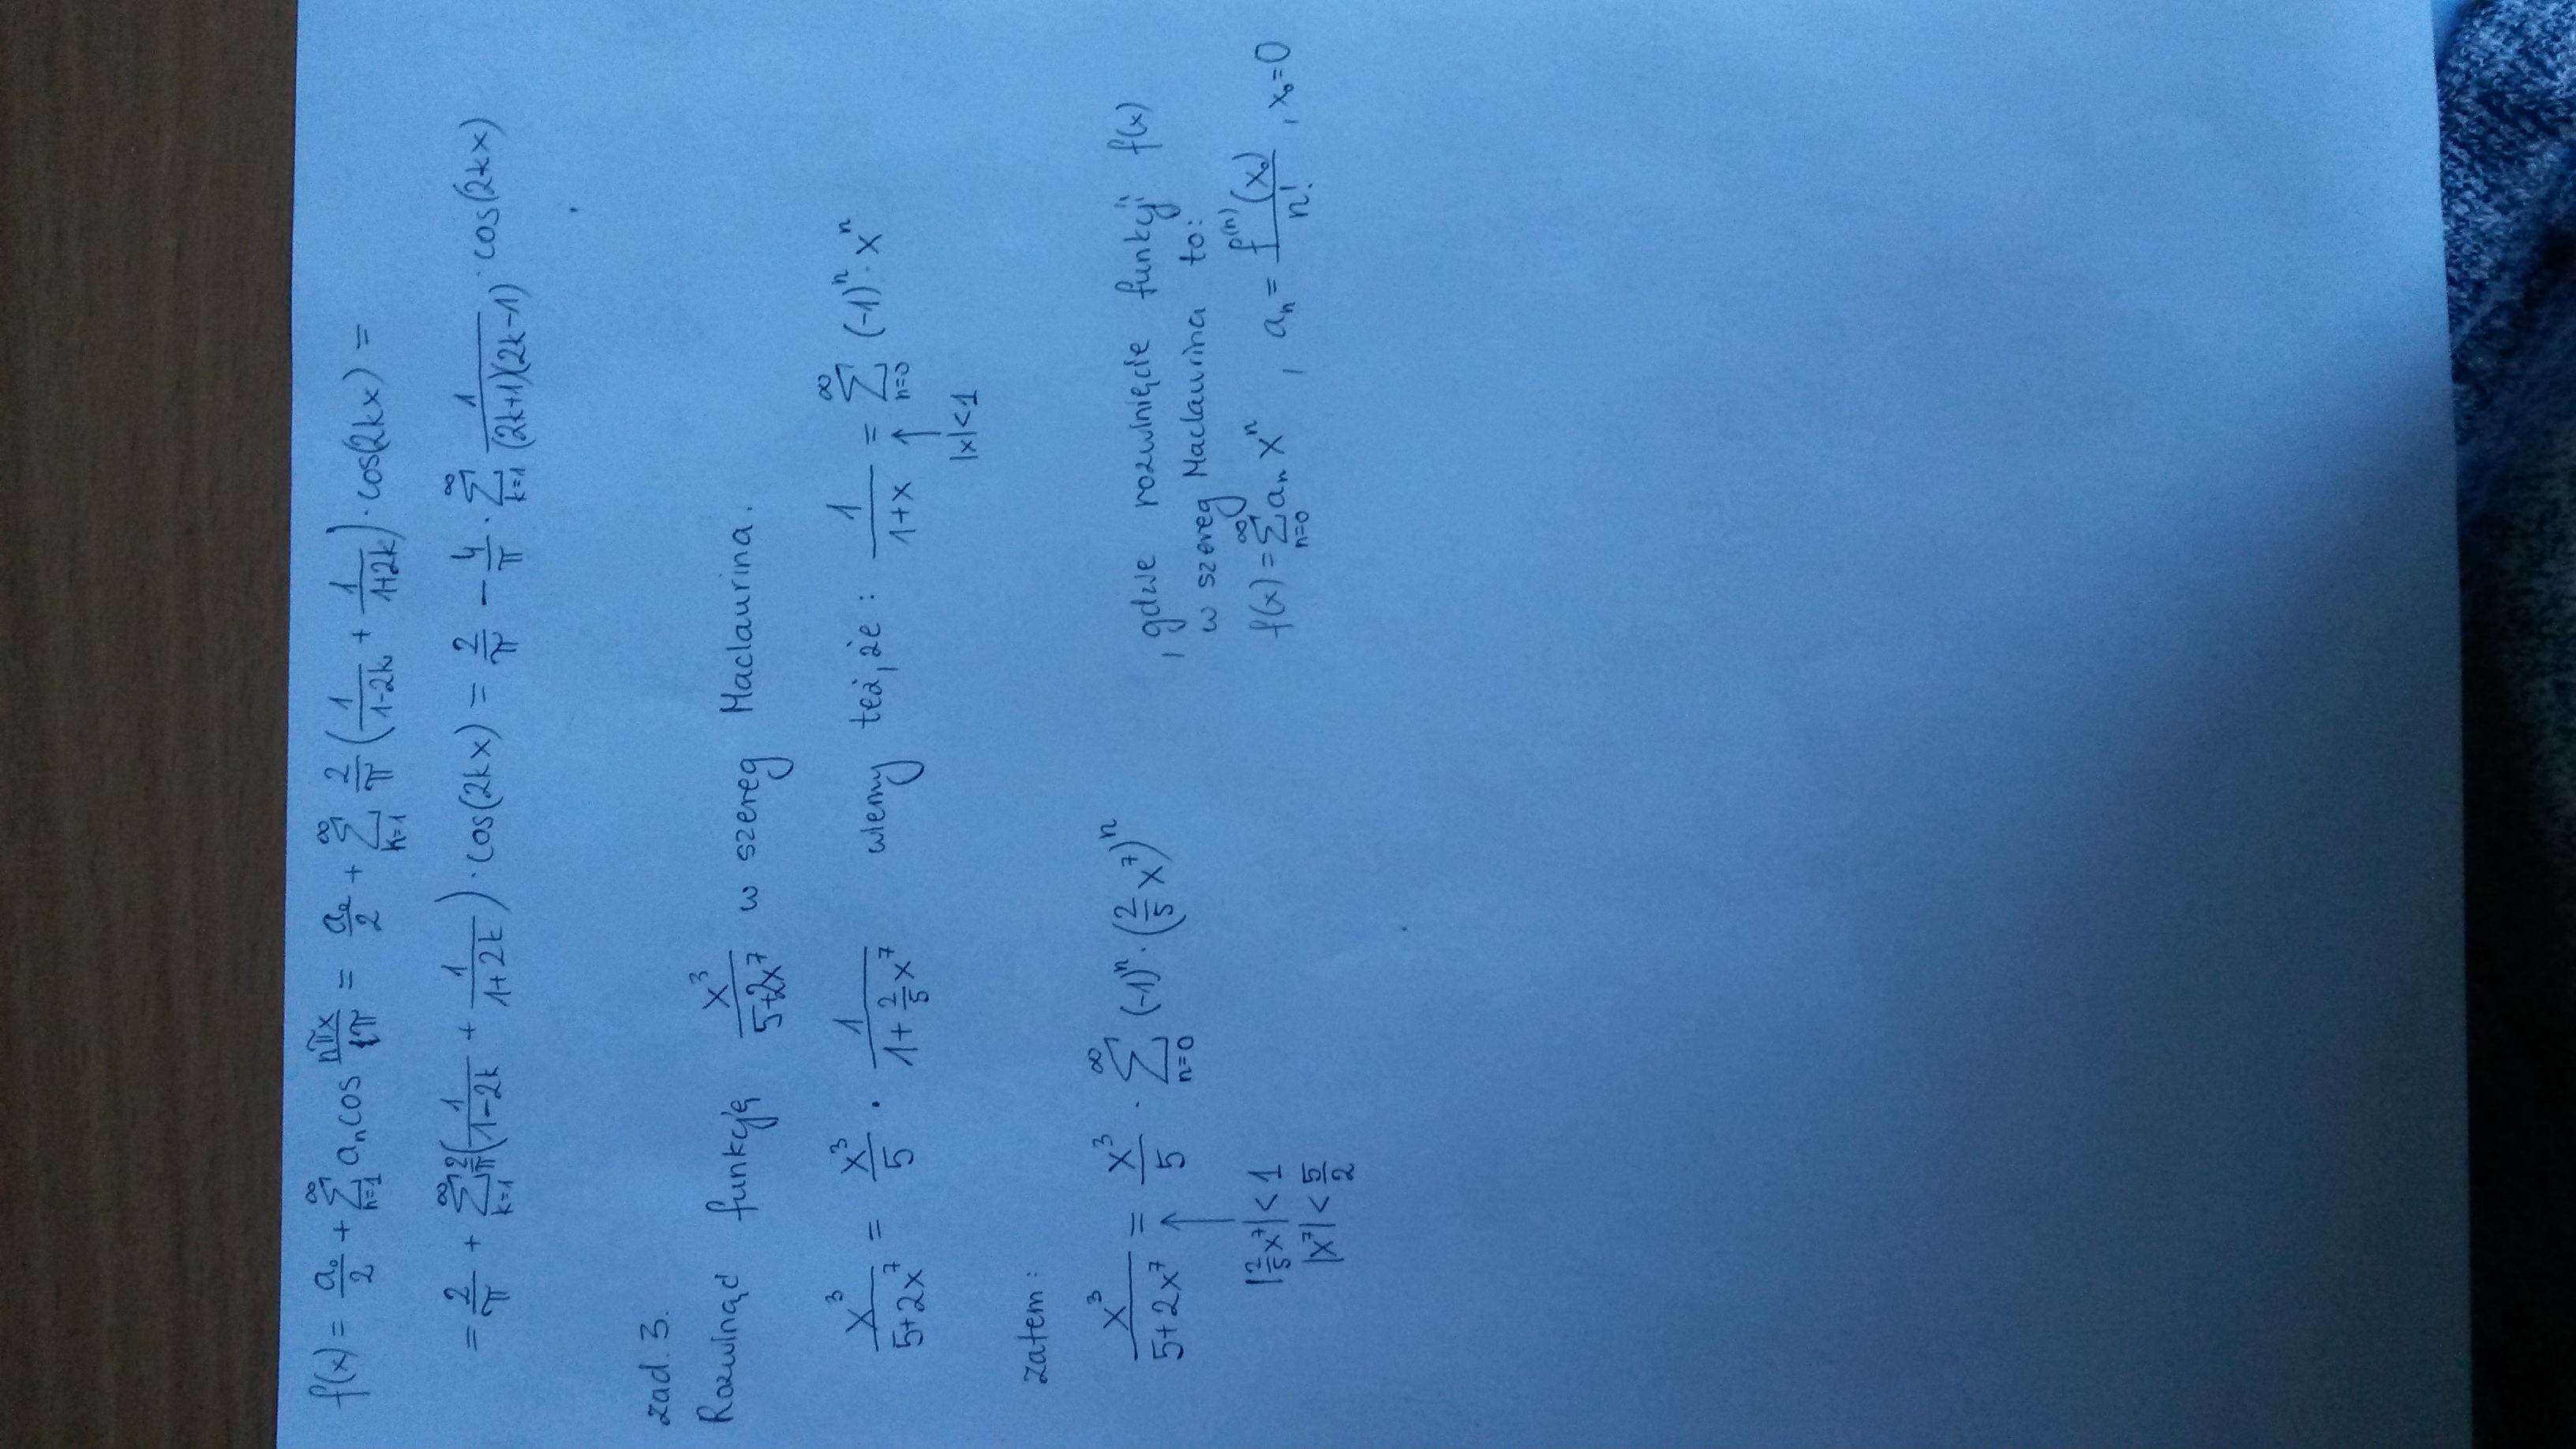 f(x) = a₀/2 + ∑_{n=1}^{∞} aₙ cos nπx/π = a₀/2 + ∑_{k=1}^{∞} 2/π (1/(1-2k) + 1/(1+2k)) · cos(2kx) =
= 2/π + ∑_{k=1}^{∞} 2/π (1/(1-2k) + 1/(1+2k)) · cos(2kx) = 2/π - 4/π · ∑_{k=1}^{∞} 1/((2k+1)(2k-1)) · cos(2kx)
zad. 3.
Rozwinąć funkcję x³/(5+2x⁷) w szereg Maclaurina.
x³/(5+2x⁷) = x³/5 · 1/(1+2/5 x⁷) wiemy też, że : 1/(1+x) = ∑_{n=0}^{∞} (-1)ⁿ · xⁿ
↑
|x|<1
zatem:
x³/(5+2x⁷) = x³/5 · ∑_{n=0}^{∞} (-1)ⁿ · (2/5 x⁷)ⁿ
↑
|2/5 x⁷| < 1
|x⁷| < 5/2
, gdzie rozwinięcie funkcji f(x)
w szereg Maclaurina to:
f(x) = ∑_{n=0}^{∞} aₙ xⁿ , aₙ = f⁽ⁿ⁾(x₀)/n! , x₀=0